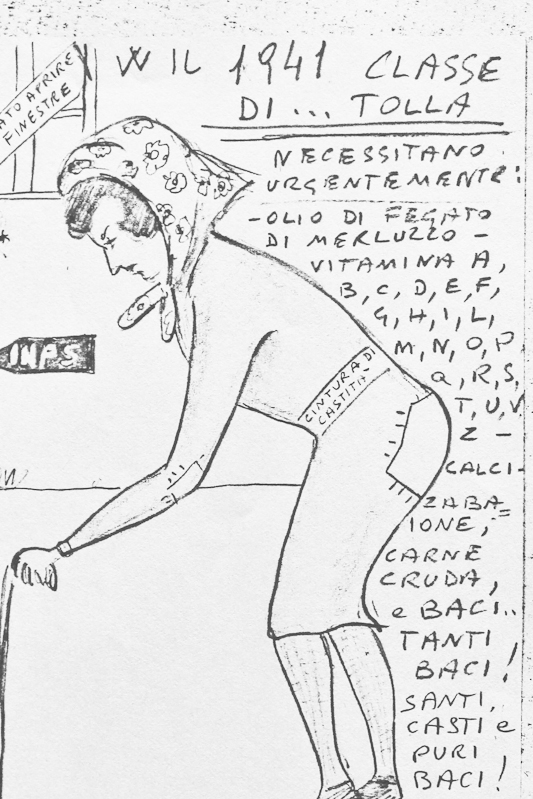 W IL 1941 CLASSE
DI... TOLLA
ATO APRIRE
FINESTRE
NECESSITANO
URGENTEMENTE:
-OLIO DI FEGATO
DI MERLUZZO -
VITAMINA A,
B, C, D, E, F,
G, H, I, L,
M, N, O, P
Q, R, S,
T, U, V
Z -
CALCI-
ZABA=
IONE,
CARNE
CRUDA,
e BACI..
TANTI
BACI!
SANTI,
CASTI e
PURI
BACI!
INPS
CINTURA DI
CASTITA'